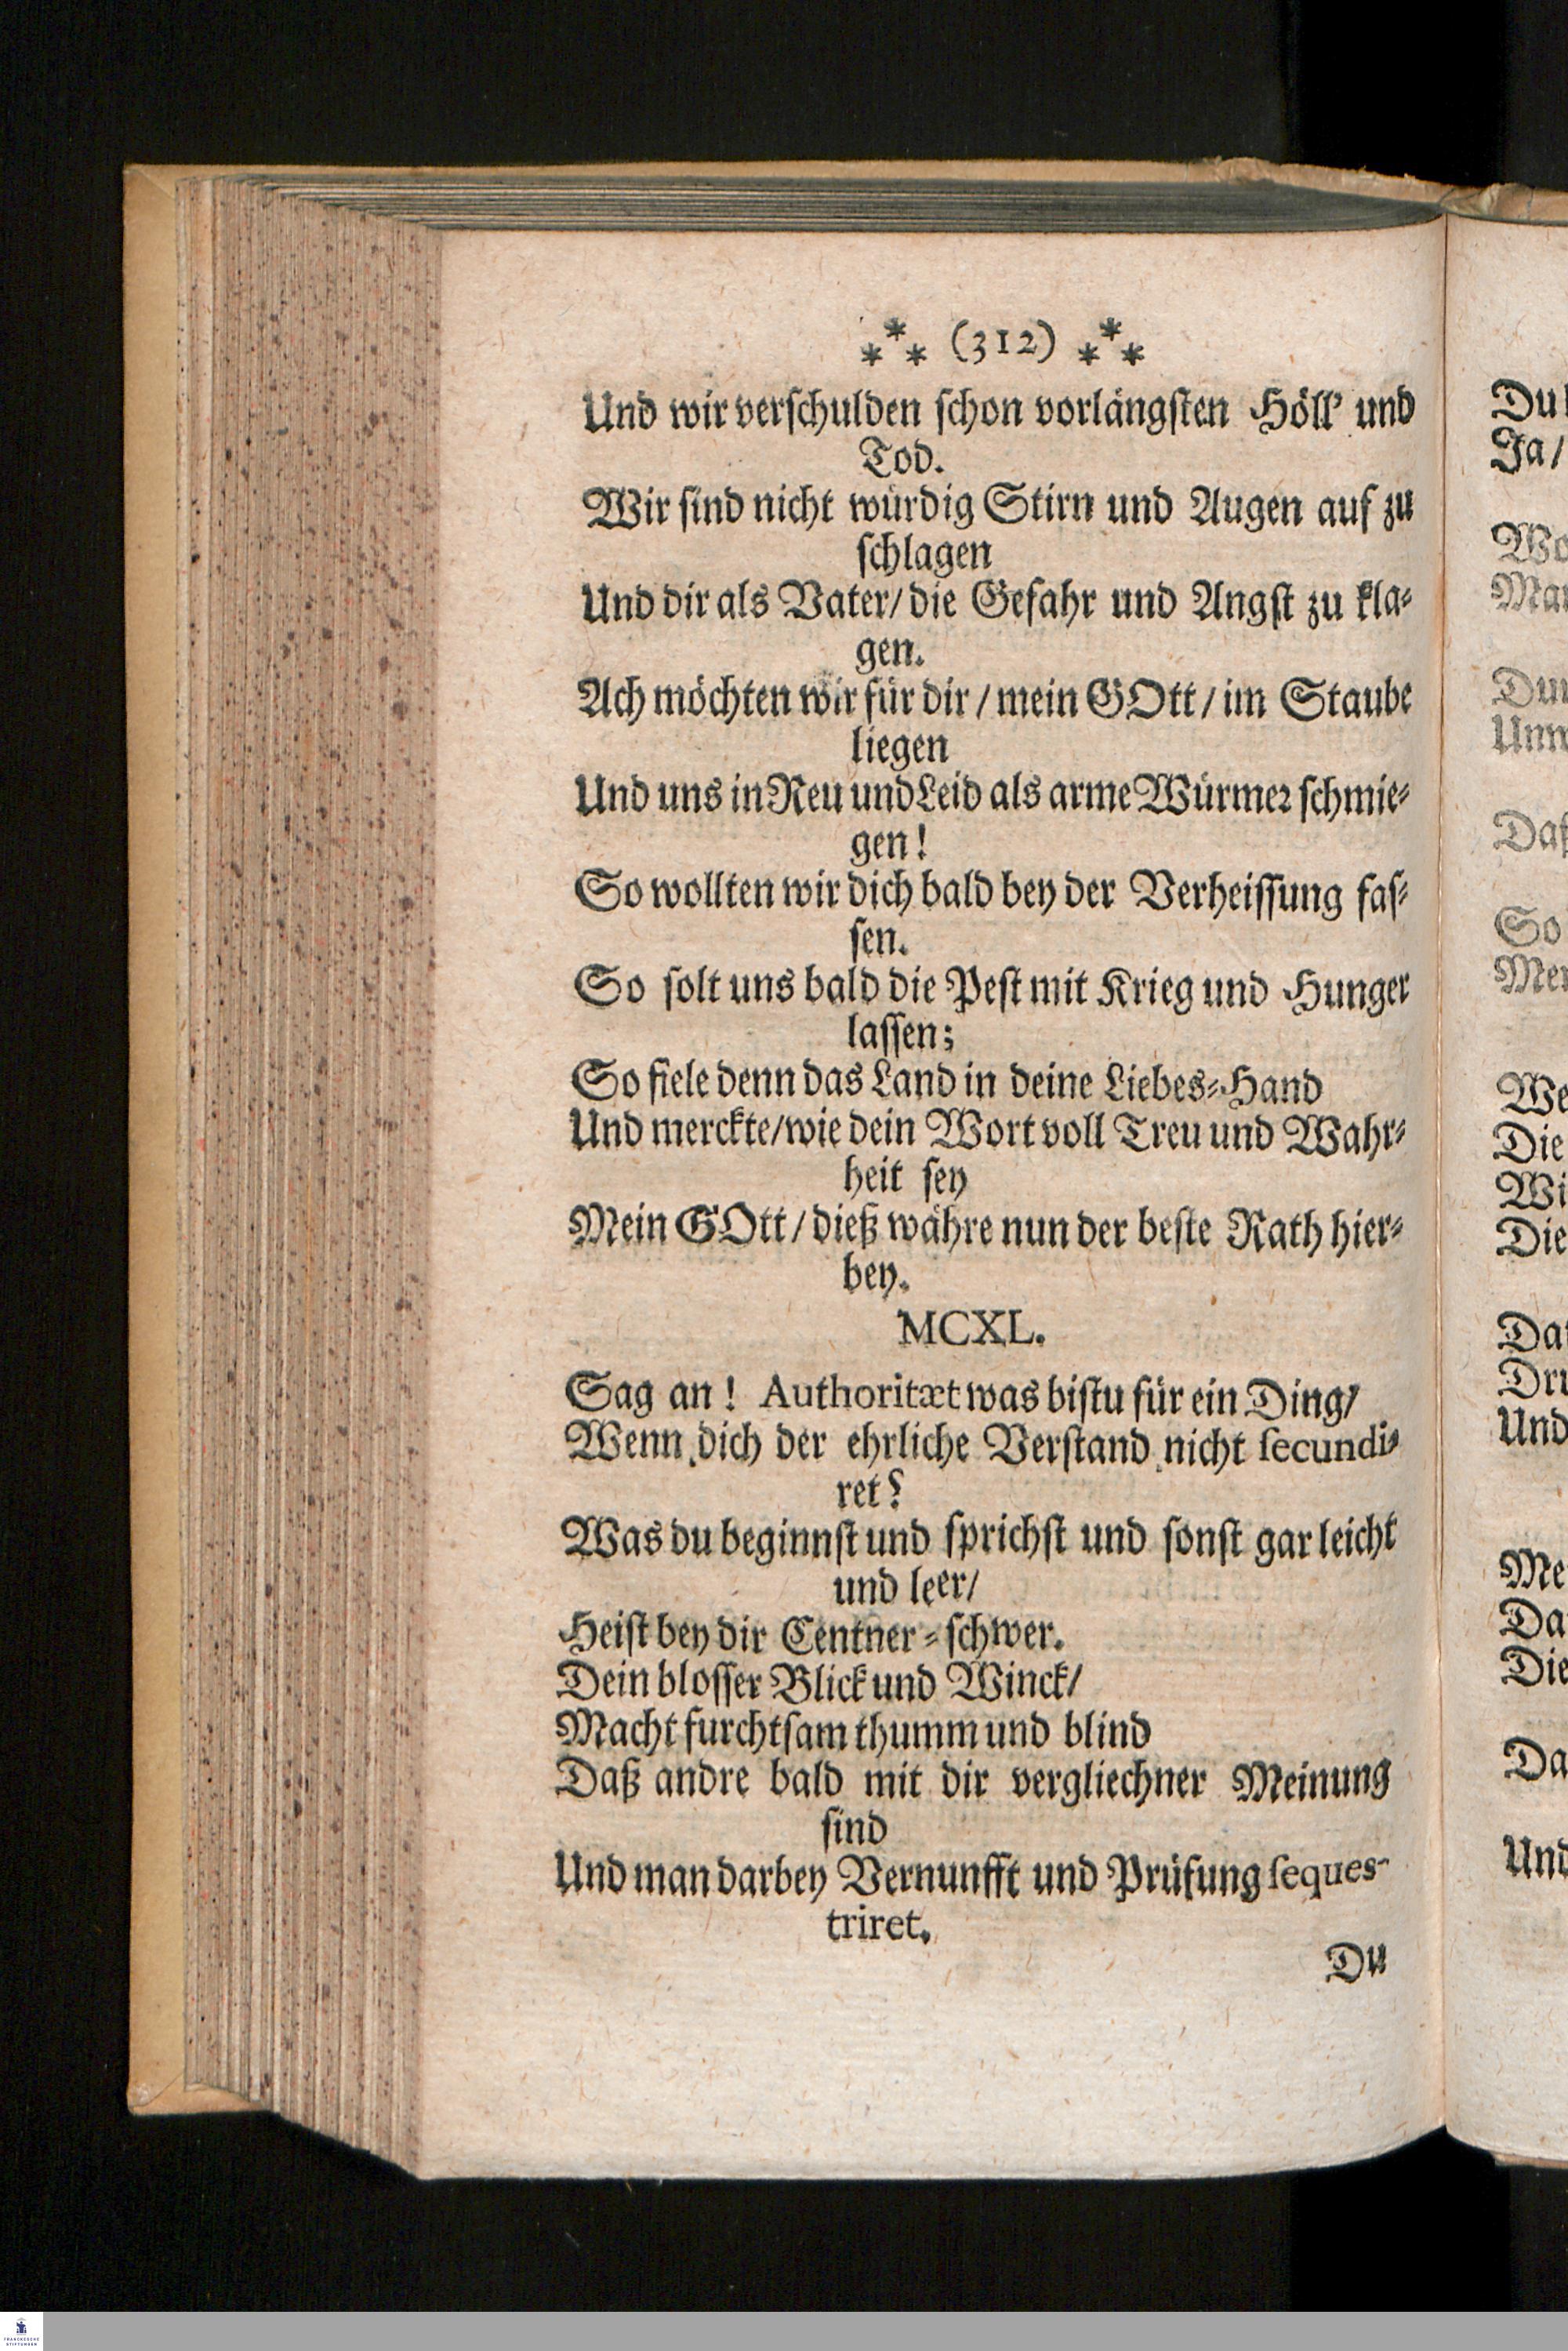 ⁂ (312) ⁂
Und wir verschulden schon vorlängsten Höll' und
Tod.
Wir sind nicht würdig Stirn und Augen auf zu
schlagen
Und dir als Vater/ die Gefahr und Angst zu kla⸗
gen.
Ach möchten wir für dir / mein GOtt / im Staube
liegen
Und uns in Reu und Leid als arme Würmer schmie⸗
gen!
So wollten wir dich bald bey der Verheissung fas⸗
sen.
So solt uns bald die Pest mit Krieg und Hunger
lassen;
So fiele denn das Land in deine Liebes⸗Hand
Und merckte/wie dein Wort voll Treu und Wahr⸗
heit sey
Mein GOtt / dieß währe nun der beste Rath hier⸗
bey.
MCXL.
Sag an! Authoritæt was bistu für ein Ding/
Wenn dich der ehrliche Verstand nicht secundi⸗
ret?
Was du beginnst und sprichst und sonst gar leicht
und leer/
Heist bey dir Centner⸗schwer.
Dein blosser Blick und Winck/
Macht furchtsam thumm und blind
Daß andre bald mit dir vergliechner Meinung
sind
Und man darbey Vernunfft und Prüfung seques-
triret.
Du
Ja/
Die
Die
Und
Die
Und
So
FRANCKESCHE
STIFTUNGEN